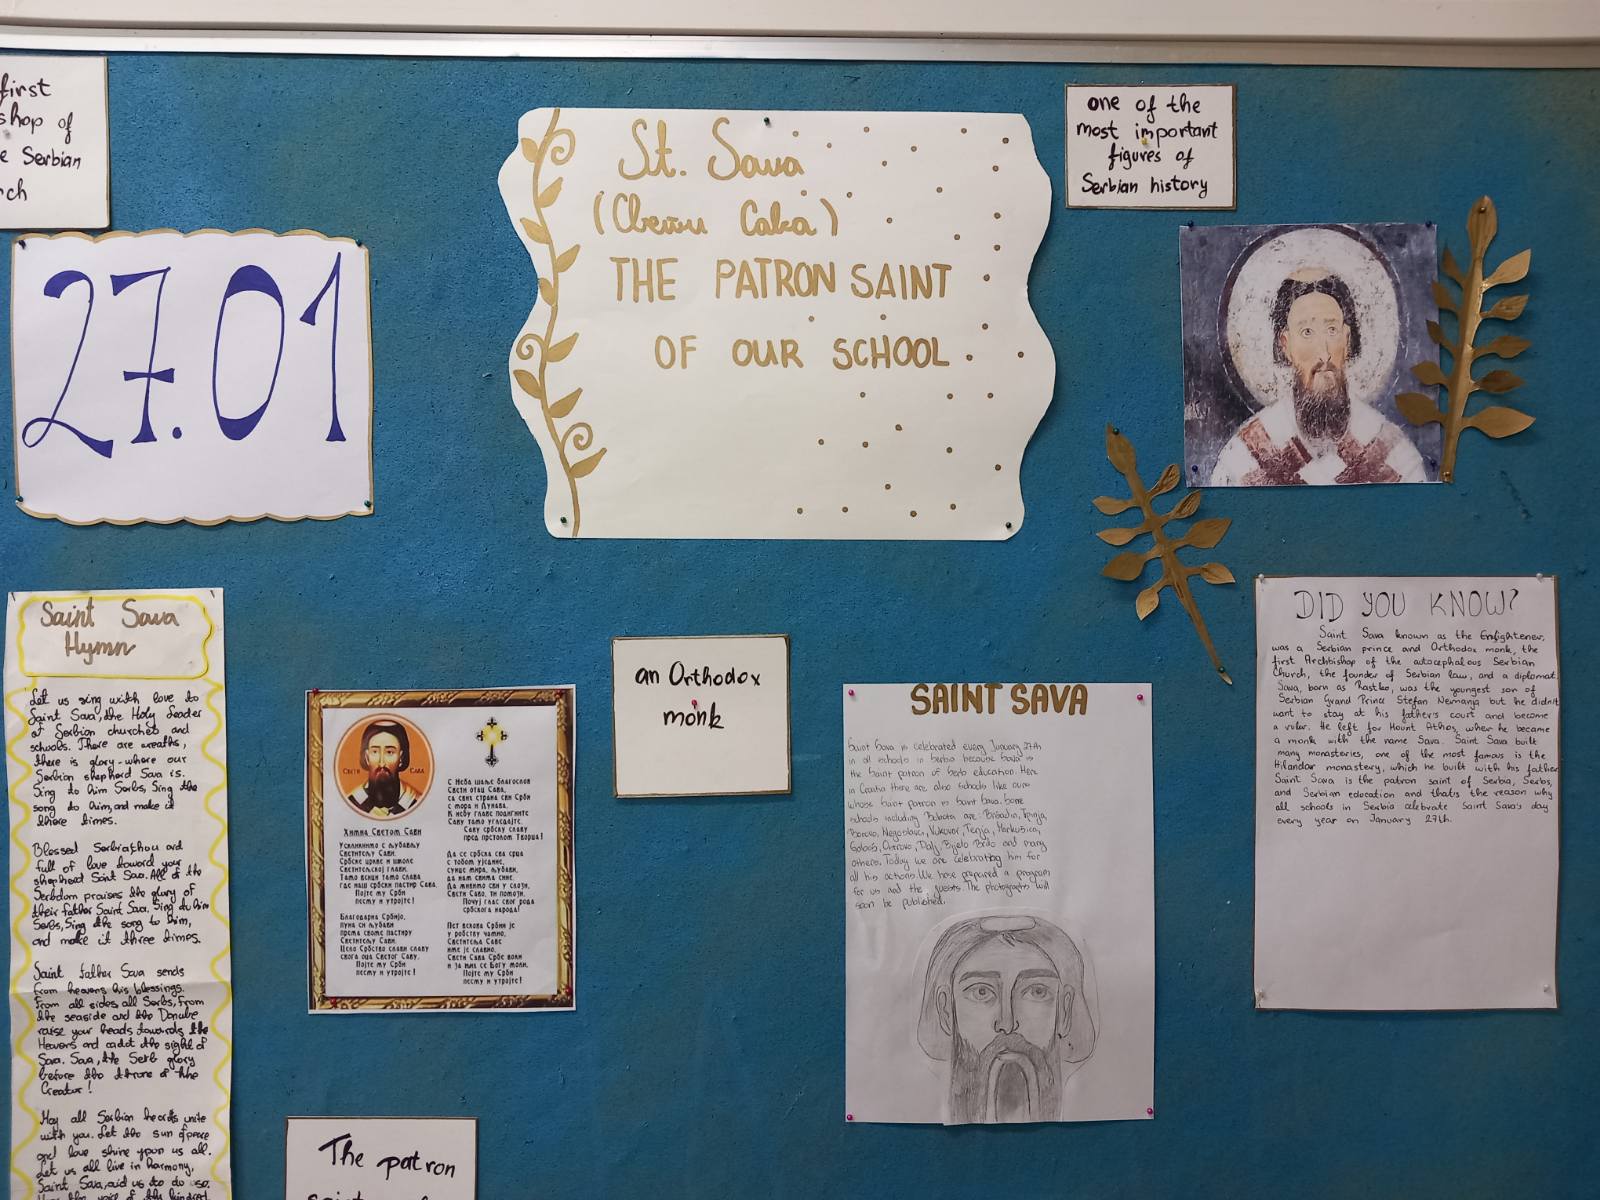 first
shop of
e Serbian
rch
27.01
St. Sava
(Свети Сава)
THE PATRON SAINT
OF OUR SCHOOL
one of the
most important
figures of
Serbian history
Saint Sava
Hymn
Let us sing with love to
Saint Sava, the Holy leader
of Serbian churches and
schools. There are wreaths,
there is glory - where our
Serbian shepherd Sava is.
Sing to him Serbs, Sing the
song to him, and make it
three times.
Blessed Serbia, thou art
full of love toward your
shepherd Saint Sava. All of the
Serbdom praises the glory of
their father Saint Sava. Sing to him
Serbs, Sing the song to him,
and make it three times.
Saint father Sava sends
from heavens his blessings.
From all sides, all Serbs, from
the seaside and the Danube
raise your heads towards the
Heavens and catch the sight of
Sava. Sava, the Serb glory
before the throne of the
Creator!
May all Serbian hearts unite
with you. Let the sun of peace
and love shine upon us all.
Let us all live in harmony,
Saint Sava, aid us to do so.
СВЕТИ САВА
Химна Светом Сави
Ускликнимо с љубављу
Светитељу Сави.
Српске цркве и школе
Светитељској глави.
Тамо венци тамо слава
где наш српски пастир Сава.
Појте му Срби
песму и утројте!
Благодарна Србијо,
пуна си љубави
према своме пастиру
Светитељу Сави.
Цело Српство слави славу
свога оца Светог Саву.
Појте му Срби
песму и утројте!
С Неба шаље благослов
Свети отац Сава,
са свих страна сви Срби
с мора и Дунава.
К небу главе подигните
Саву тамо угледајте.
Саву српску славу
пред престолом Творца!
Да се српска сва срца
с тобом уједине,
сунце мира, љубави,
да нам свима сине.
Да живимо сви у слози,
Свети Саво, ти помози,
Почуј глас свог рода
српскога народа!
Пет векова Србин је
у ропству чамио,
Светитеља Саве
име је славио.
Свети Сава Србе воли
и за њих се Богу моли,
Појте му Срби
песму и утројте!
an Orthodox
monk
SAINT SAVA
Saint Sava is celebrated every January 27th
in all schools in Serbia because Sava is
the Saint patron of Serb education. Here
in Croatia there are also schools like ours
whose Saint patron is Saint Sava. Some
schools including Bobota are: Bršadin, Trpinja,
Borovo, Negoslavci, Vukovar, Tenja, Markušica,
Gaboš, Ostrovo, Dalj, Bijelo Brdo and many
others. Today we are celebrating him for
all his actions. We have prepared a program
for us and the guests. The photographs will
soon be published.
DID YOU KNOW?
Saint Sava known as the Enlightener,
was a Serbian prince and Orthodox monk, the
first Archbishop of the autocephalous Serbian
Church, the founder of Serbian law, and a diplomat.
Sava, born as Rastko, was the youngest son of
Serbian Grand Prince Stefan Nemanja but he didn't
want to stay at his father's court and become
a ruler. He left for Mount Athos, wher he became
a monk with the name Sava. Saint Sava built
many monasteries, one of the most famous is the
Hilandar monastery, which he built with his father.
Saint Sava is the patron saint of Serbia, Serbs,
and Serbian education and that's the reason why
all schools in Serbia celebrate Saint Sava's day
every year on January 27th.
The patron